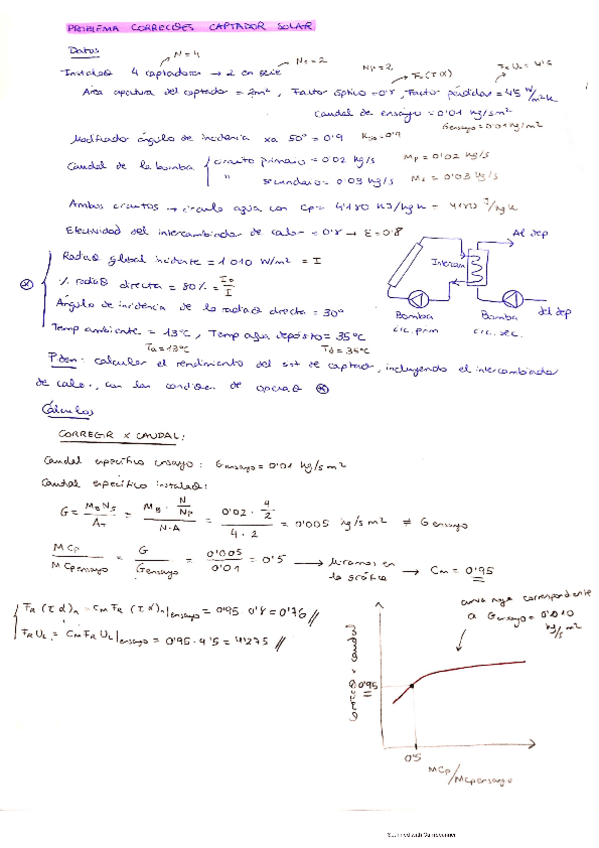 PROBLEMA CORRECCIÓNES CAPTADOR SOLAR
Datos
N=4
Ns=2
Np=2
FR(τα)
FR UL = 4'5
Instalación 4 captadores → 2 en serie
Área apertura del captador = 2m², Factor óptico = 0'8, Factor pérdidas = 4'5 W/m²K
Caudal de ensayo = 0'01 kg/s m²
Gensayo = 0'01 kg/m²
Modificador ángulo de incidencia xa 50° = 0'9
K50 = 0'9
Caudal de la bomba { circuito primario = 0'02 kg/s
Mp = 0'02 kg/s
" secundario = 0'03 kg/s
Ms = 0'03 kg/s
Ambos circuitos → circula agua con Cp = 4'180 KJ/kg K = 4180 J/kg K
Efectividad del intercambiador de calor = 0'8 → ε = 0'8
Radiaθ global incidente = 1010 W/m² = I
% radiaθ directa = 80% = ID/I
Ángulo de incidencia de la radiaθ directa = 30°
Temp ambiente = 13°C, Temp agua depósito = 35°C
Ta = 13°C
Td = 35°C
Al dep
Intercam
Bomba
circ. prim
Bomba
circ. sec.
del dep
Piden: calcular el rendimiento del sist de captación, incluyendo el intercambiador
de calor, con las condiciones de operaθ
Cálculos
CORREGIR x CAUDAL:
Caudal específico ensayo: Gensayo = 0'01 kg/s m²
Caudal específico instalado:
G = MB NS / AT = MB · N/NP / N·A = 0'02 · 4/2 / 4·2 = 0'005 kg/s m² ≠ Gensayo
MCp / MCpensayo = G / Gensayo = 0'005 / 0'01 = 0'5 → miramos en la gráfica → Cm = 0'95
FR(τα)n = Cm FR(τα)n|ensayo = 0'95 · 0'8 = 0'76 //
FR UL = Cm FR UL|ensayo = 0'95 · 4'5 = 4'275 //
curva roja correspondiente
a Gensayo = 0'010
kg/s m²
Corrección x caudal
0'95
0'5
MCp/MCpensayo